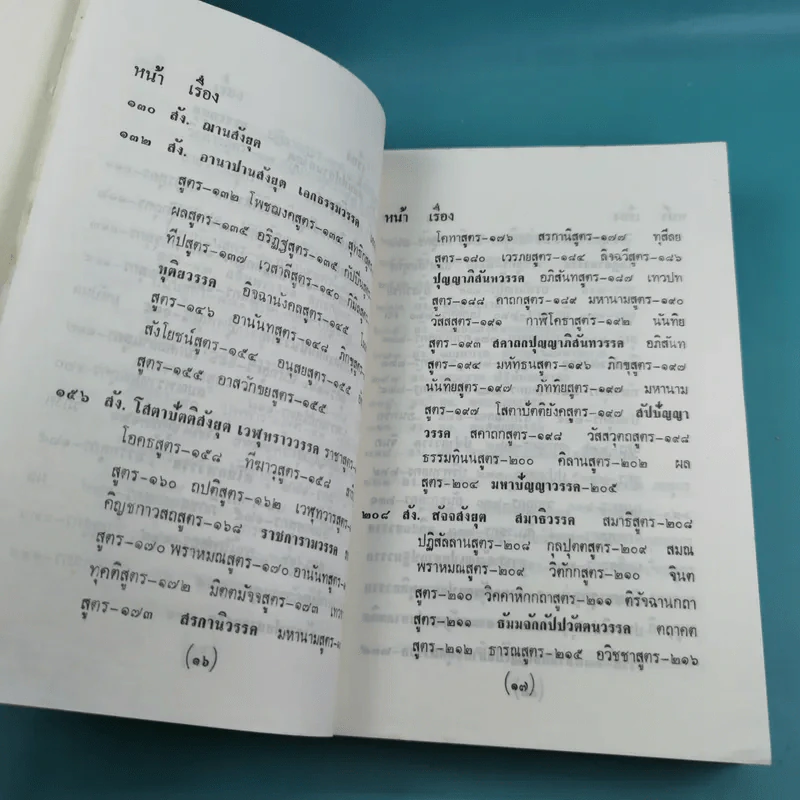 หน้า เรื่อง
๑๓๐ สัง. ฌานสังยุต
๑๓๒ สัง. อานาปานสังยุต เอกธรรมวรรค
สูตร-๑๓๒ โพชฌงคสูตร-๑๓๔ สุทธิกสูตร
ผลสูตร-๑๓๕ อริฏฐสูตร-๑๓๕ กัปปินสูตร
ทีปสูตร-๑๓๗ เวสาลีสูตร-๑๔๐ กิมิลสูตร
ทุติยวรรค อิจฉานังคลสูตร-๑๔๕
สูตร-๑๔๖ อานันทสูตร-๑๔๘ ภิกขุสูตร
สังโยชน์สูตร-๑๕๔ อนุสยสูตร-๑๕๕
สูตร-๑๕๕ อาสวักขยสูตร-๑๕๕
๑๕๖ สัง. โสตาปัตติสังยุต เวฬุทวารวรรค ราชาสูตร-
โอคธสูตร-๑๕๘ ทีฆาวุสูตร-๑๕๘
สูตร-๑๖๐ ถปติสูตร-๑๖๒ เวฬุทวารสูตร-
คิญชกาวสถสูตร-๑๖๘ ราชการามวรรค
สูตร-๑๗๐ พราหมณสูตร-๑๗๐ อานันทสูตร-
ทุคติสูตร-๑๗๒ มิตตมัจจสูตร-๑๗๓ เทวจา
สูตร-๑๗๓ สรกานิวรรค มหานามสูตร-
(๑๖)
หน้า เรื่อง
โคทาสูตร-๑๗๖ สรกานิสูตร-๑๗๗ ทุสีลย
สูตร-๑๘๐ เวรภยสูตร-๑๘๔ ลิจฉวีสูตร-๑๘๖
ปุญญาภิสันทวรรค อภิสันทสูตร-๑๘๗ เทวปท
สูตร-๑๘๘ คาถกสูตร-๑๘๙ มหานามสูตร-๑๙๐
วัสสสูตร-๑๙๑ กาฬิโคธาสูตร-๑๙๒ นันทิย
สูตร-๑๙๓ สคาถกปุญญาภิสันทวรรค อภิสันท
สูตร-๑๙๔ มหัทธนสูตร-๑๙๖ ภิกขุสูตร-๑๙๗
นันทิยสูตร-๑๙๗ ภัททิยสูตร-๑๙๗ มหานาม
สูตร-๑๙๗ โสตาปัตติยังคสูตร-๑๙๗ สัปปัญญา
วรรค สคาถกสูตร-๑๙๘ วัสสวุตถสูตร-๑๙๘
ธรรมทินนสูตร-๒๐๐ คิลานสูตร-๒๐๒ ผล
สูตร-๒๐๔ มหาปัญญาวรรค-๒๐๕
๒๐๘ สัง. สัจจสังยุต สมาธิวรรค สมาธิสูตร-๒๐๘
ปฏิสัลลานสูตร-๒๐๘ กุลปุตตสูตร-๒๐๙ สมณ
พราหมณสูตร-๒๐๙ วิตักกสูตร-๒๑๐ จินต
สูตร-๒๑๐ วิคคาหิกกถาสูตร-๒๑๑ ติรัจฉานกถา
สูตร-๒๑๑ ธัมมจักกัปปวัตตนวรรค ตถาคต
สูตร-๒๑๒ ธารณสูตร-๒๑๕ อวิชชาสูตร-๒๑๖
(๑๗)